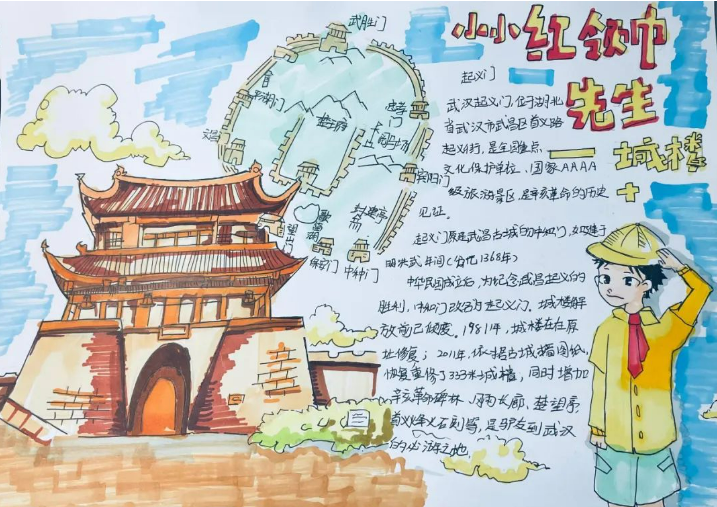 小小红领巾
先生
— 城楼
武胜门
平湖门
楚王府
望山门
保安门
中和门
宾阳门
起义门
武汉起义门,位于湖北
省武汉市武昌区首义路
起义街,是全国重点
文化保护单位、国家AAAA
经旅游景区,是辛亥革命的历史
见证。
起义门原是武昌古城的中和门,始建于
明洪武年间(公元1368年)
中华民国成立后,为纪念武昌起义的
胜利,中和门改名为起义门。城楼解
放前已倾废。1981年,城楼在在原
址修复;2011年,依据古城墙图纸,
恢复重修了333米城墙,同时增加
辛亥革命碑林、长廊、楚望亭、
首义烽火石刻等,是驴友到武汉
的必游之地。